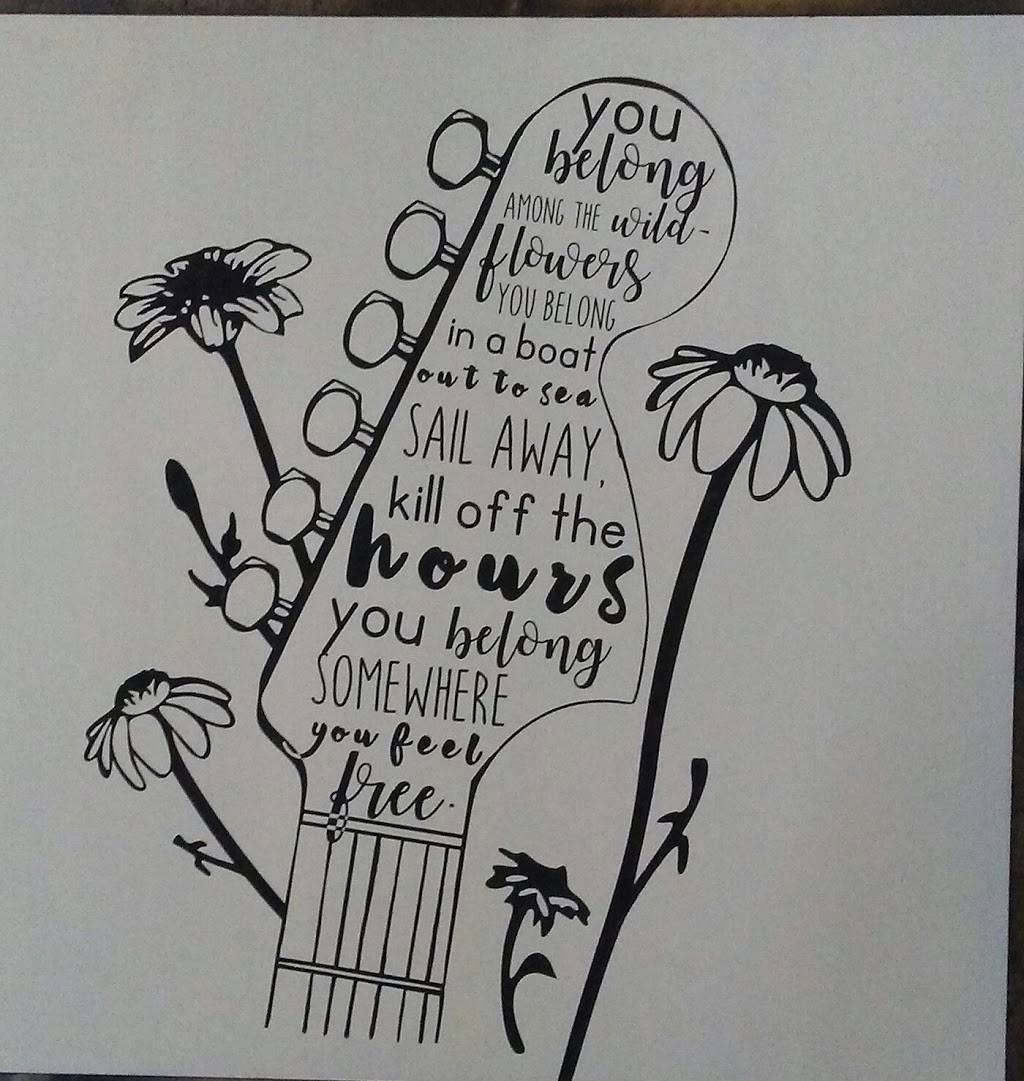 you
belong
AMONG THE wild-
flowers
YOU BELONG
in a boat
out to sea
SAIL AWAY,
kill off the
hours
you belong
SOMEWHERE
you feel
free.